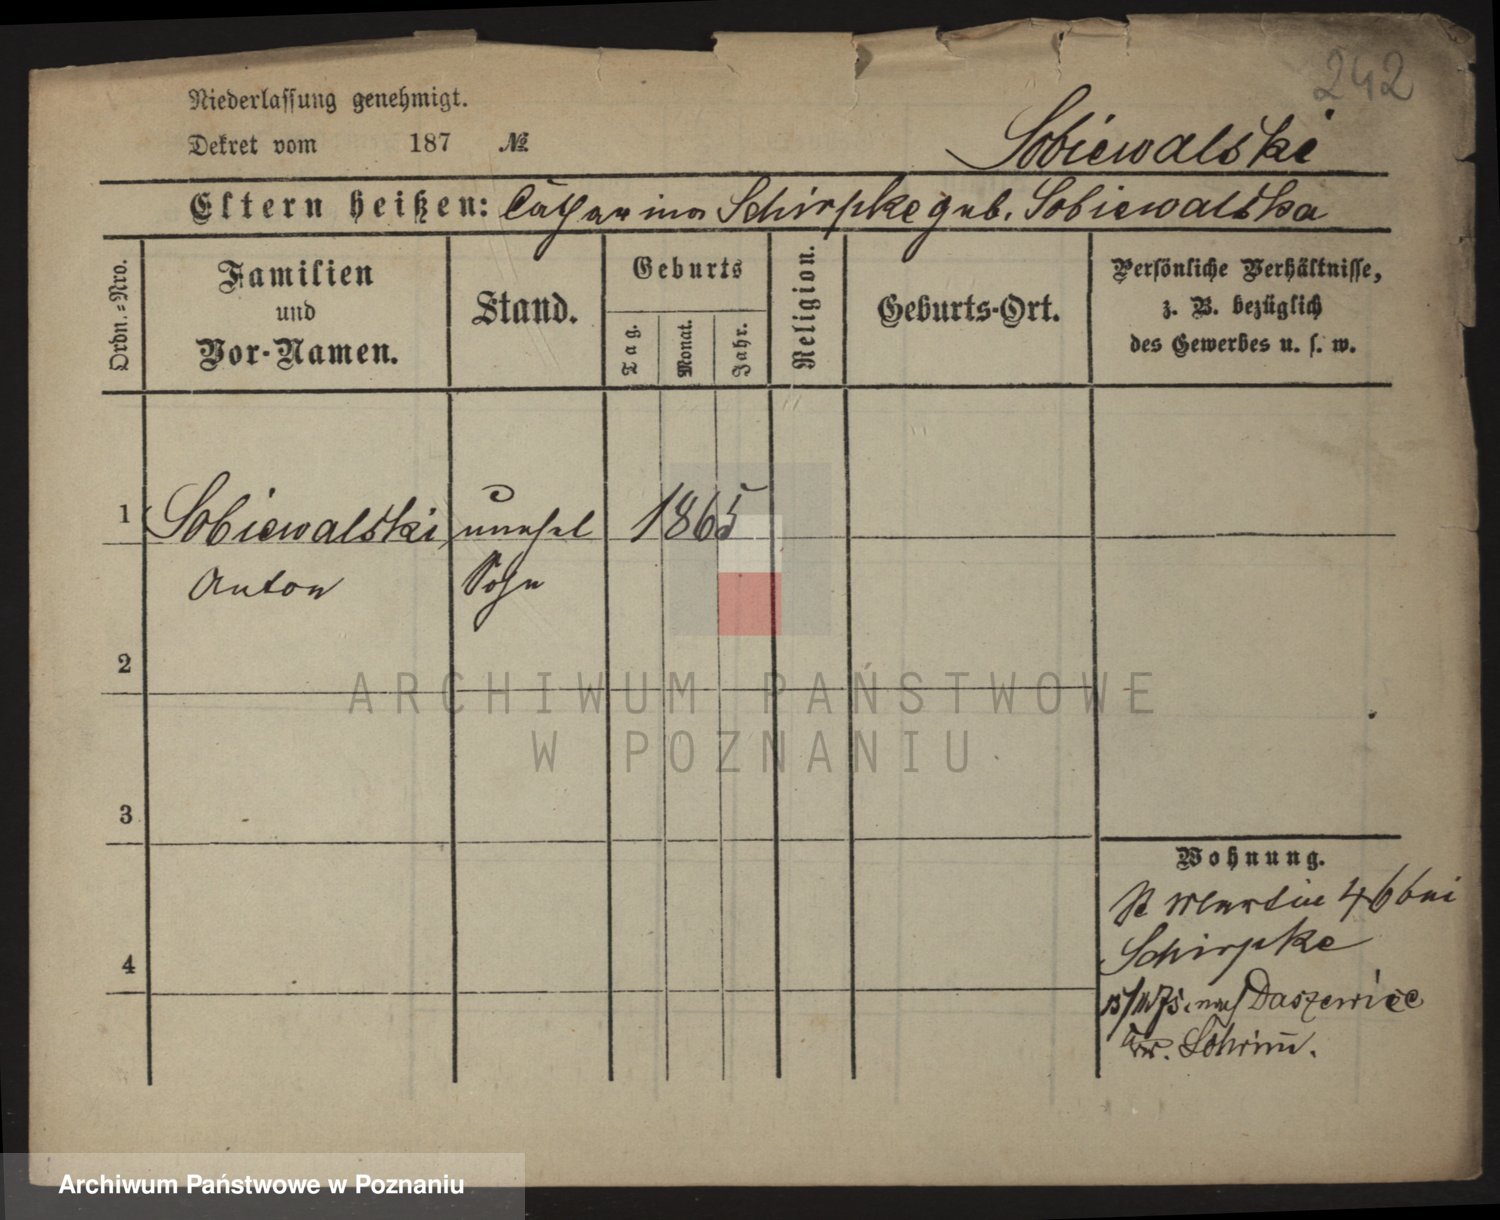 242
Niederlassung genehmigt.
Dekret vom 187 №
Sobiewalski
Eltern heißen: Catharina Schirpke geb. Sobiewalska
Ordn.-Nro.
Familien
und
Vor-Namen.
Stand.
Geburts
Tag.
Monat.
Jahr.
Religion.
Geburts-Ort.
Persönliche Verhältnisse,
z. B. bezüglich
des Gewerbes u. s. w.
1 Sobiewalski unehel 1865
Anton Sohn
2
ARCHIWUM PAŃSTWOWE
W POZNANIU
3
Wohnung.
St Martin 46 bei
Schirpke
4
nach Daszewice
Schrim.
Archiwum Państwowe w Poznaniu